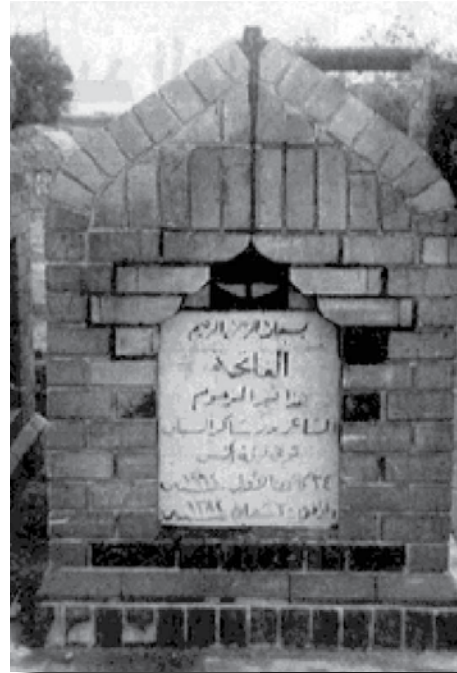 بسم الله الرحمن الرحيم
الفاتحة
هذا قبر المرحوم
الشاعر بدر شاكر السياب
توفي ليلة
٢٤ الأول ١٩٦٤
شعبان ١٣٨٤